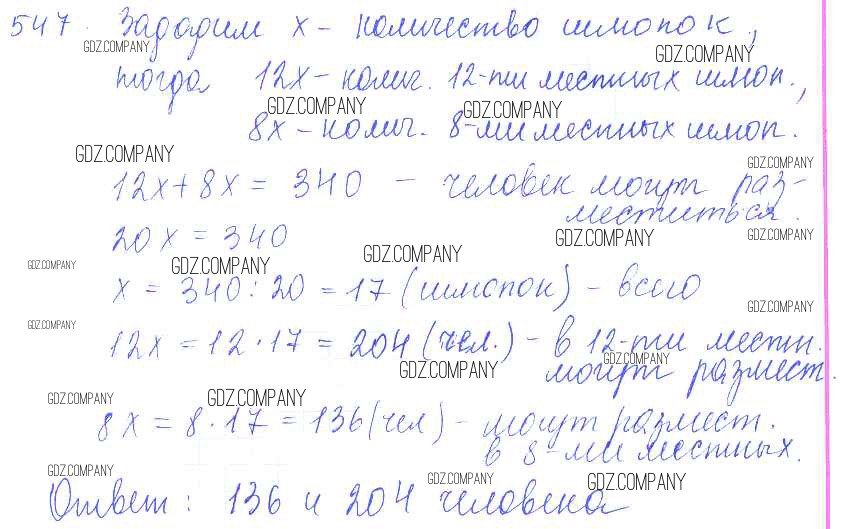 547. Зададим x - количество шлюпок,
GDZ.COMPANY GDZ.COMPANY
тогда 12x - колич. 12-ти местных шлюп.,
GDZ.COMPANY GDZ.COMPANY
8x - колич. 8-ми местных шлюп.
GDZ.COMPANY GDZ.COMPANY
12x + 8x = 340 - человек могут раз-
меститься.
20x = 340 GDZ.COMPANY GDZ.COMPANY
GDZ.COMPANY GDZ.COMPANY GDZ.COMPANY
x = 340 : 20 = 17 (шлюпок) - всего
GDZ.COMPANY GDZ.COMPANY
12x = 12 · 17 = 204 (чел.) - в 12-ти местн.
GDZ.COMPANY GDZ.COMPANY
могут размест.
GDZ.COMPANY GDZ.COMPANY
8x = 8 · 17 = 136 (чел) - могут размест.
в 8-ми местных.
GDZ.COMPANY GDZ.COMPANY GDZ.COMPANY
Ответ: 136 и 204 человека